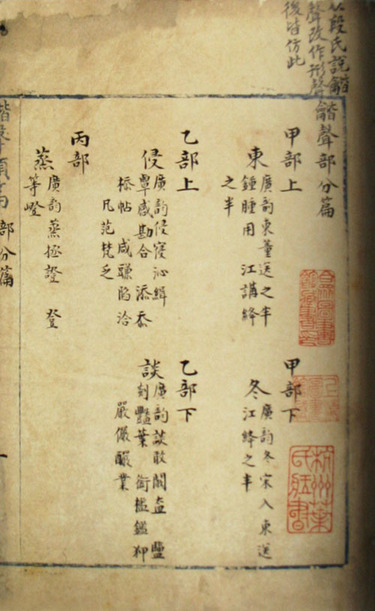 从段氏說龤
聲改作形聲
後皆仿此
龤聲部分篇
甲部上
東
廣韵東董送之半
鍾腫用 江講絳
之半
甲部下
冬
廣韵冬宋入東送
江絳之半
乙部上
侵
廣韵侵寑沁緝
覃感勘合 添忝
㮇帖 咸豏陷洽
凡范梵乏
乙部下
談
廣韵談敢闞盍 鹽
琰豔葉 銜檻鑑狎
嚴儼釅業
丙部
蒸
廣韵蒸拯證 登
等嶝
杭州葉
氏藏書